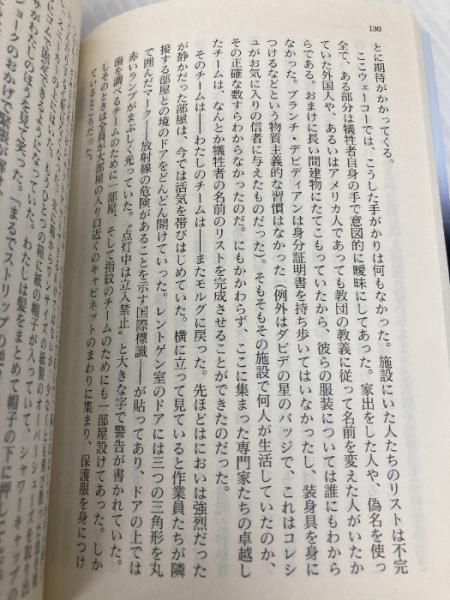 130
とに期待がかかってくる。
ここウェーコーでは、こうした手がかりは何もなかった。施設にいた人たちのリストは不完
全で、ある部分は犠牲者自身の手で意図的に曖昧にしてあった。家出をした人や、偽名を使っ
ていた外国人や、あるいはアメリカ人であっても教団の教義に従って名前を変えた人がいたか
らである。おまけに長い間建物にたてこもっていたから、彼らの服装については誰にもわから
なかった。ブランチ・デビディアンは身分証明書を持ち歩いてはいなかったし、装身具を身に
つけるなどという物質主義的な習慣はなかった(例外はダビデの星のバッジで、これはコレシ
ュがお気に入りの信者に与えたものだった)。そもそもその施設で何人が生活していたのか、
その正確な数すらわからなかったのだ。にもかかわらず、ここに集まった専門家たちの卓越し
たチームは、なんとか犠牲者の名前のリストを完成させることができたのだった。
そのチームは――わたしのチームは――またモルグに戻った。先ほどはにおいは強烈だった
が静かだった部屋は、今では活気を帯びはじめていた。横に立って見ていると作業員たちが隣
接する部屋との境のドアをどんどん開けていった。レントゲン室のドアには三つの三角形を丸
で囲んだマーク――放射線の危険があることを示す国際標識――が貼ってあり、ドアの上では
赤いランプがまぶしく光っていた。"点灯中は立入禁止"と大きな字で警告が書かれていた。
歯を調べるチームのために一部屋、そして指紋のチームのためにも一部屋設けてあった。しか
しそのときは全員が大部屋の入り口近くのキャビネットのまわりに集まり、保護服を身につけ
ているところだった。
の箱に紙の帽子が入っていて、シャワーキャップの
ようになっていた。わたしは髪をまとめて帽子の下に押し
わたしのほうを見て笑った。「まるでストリップの
ジョークのおかげで緊張が